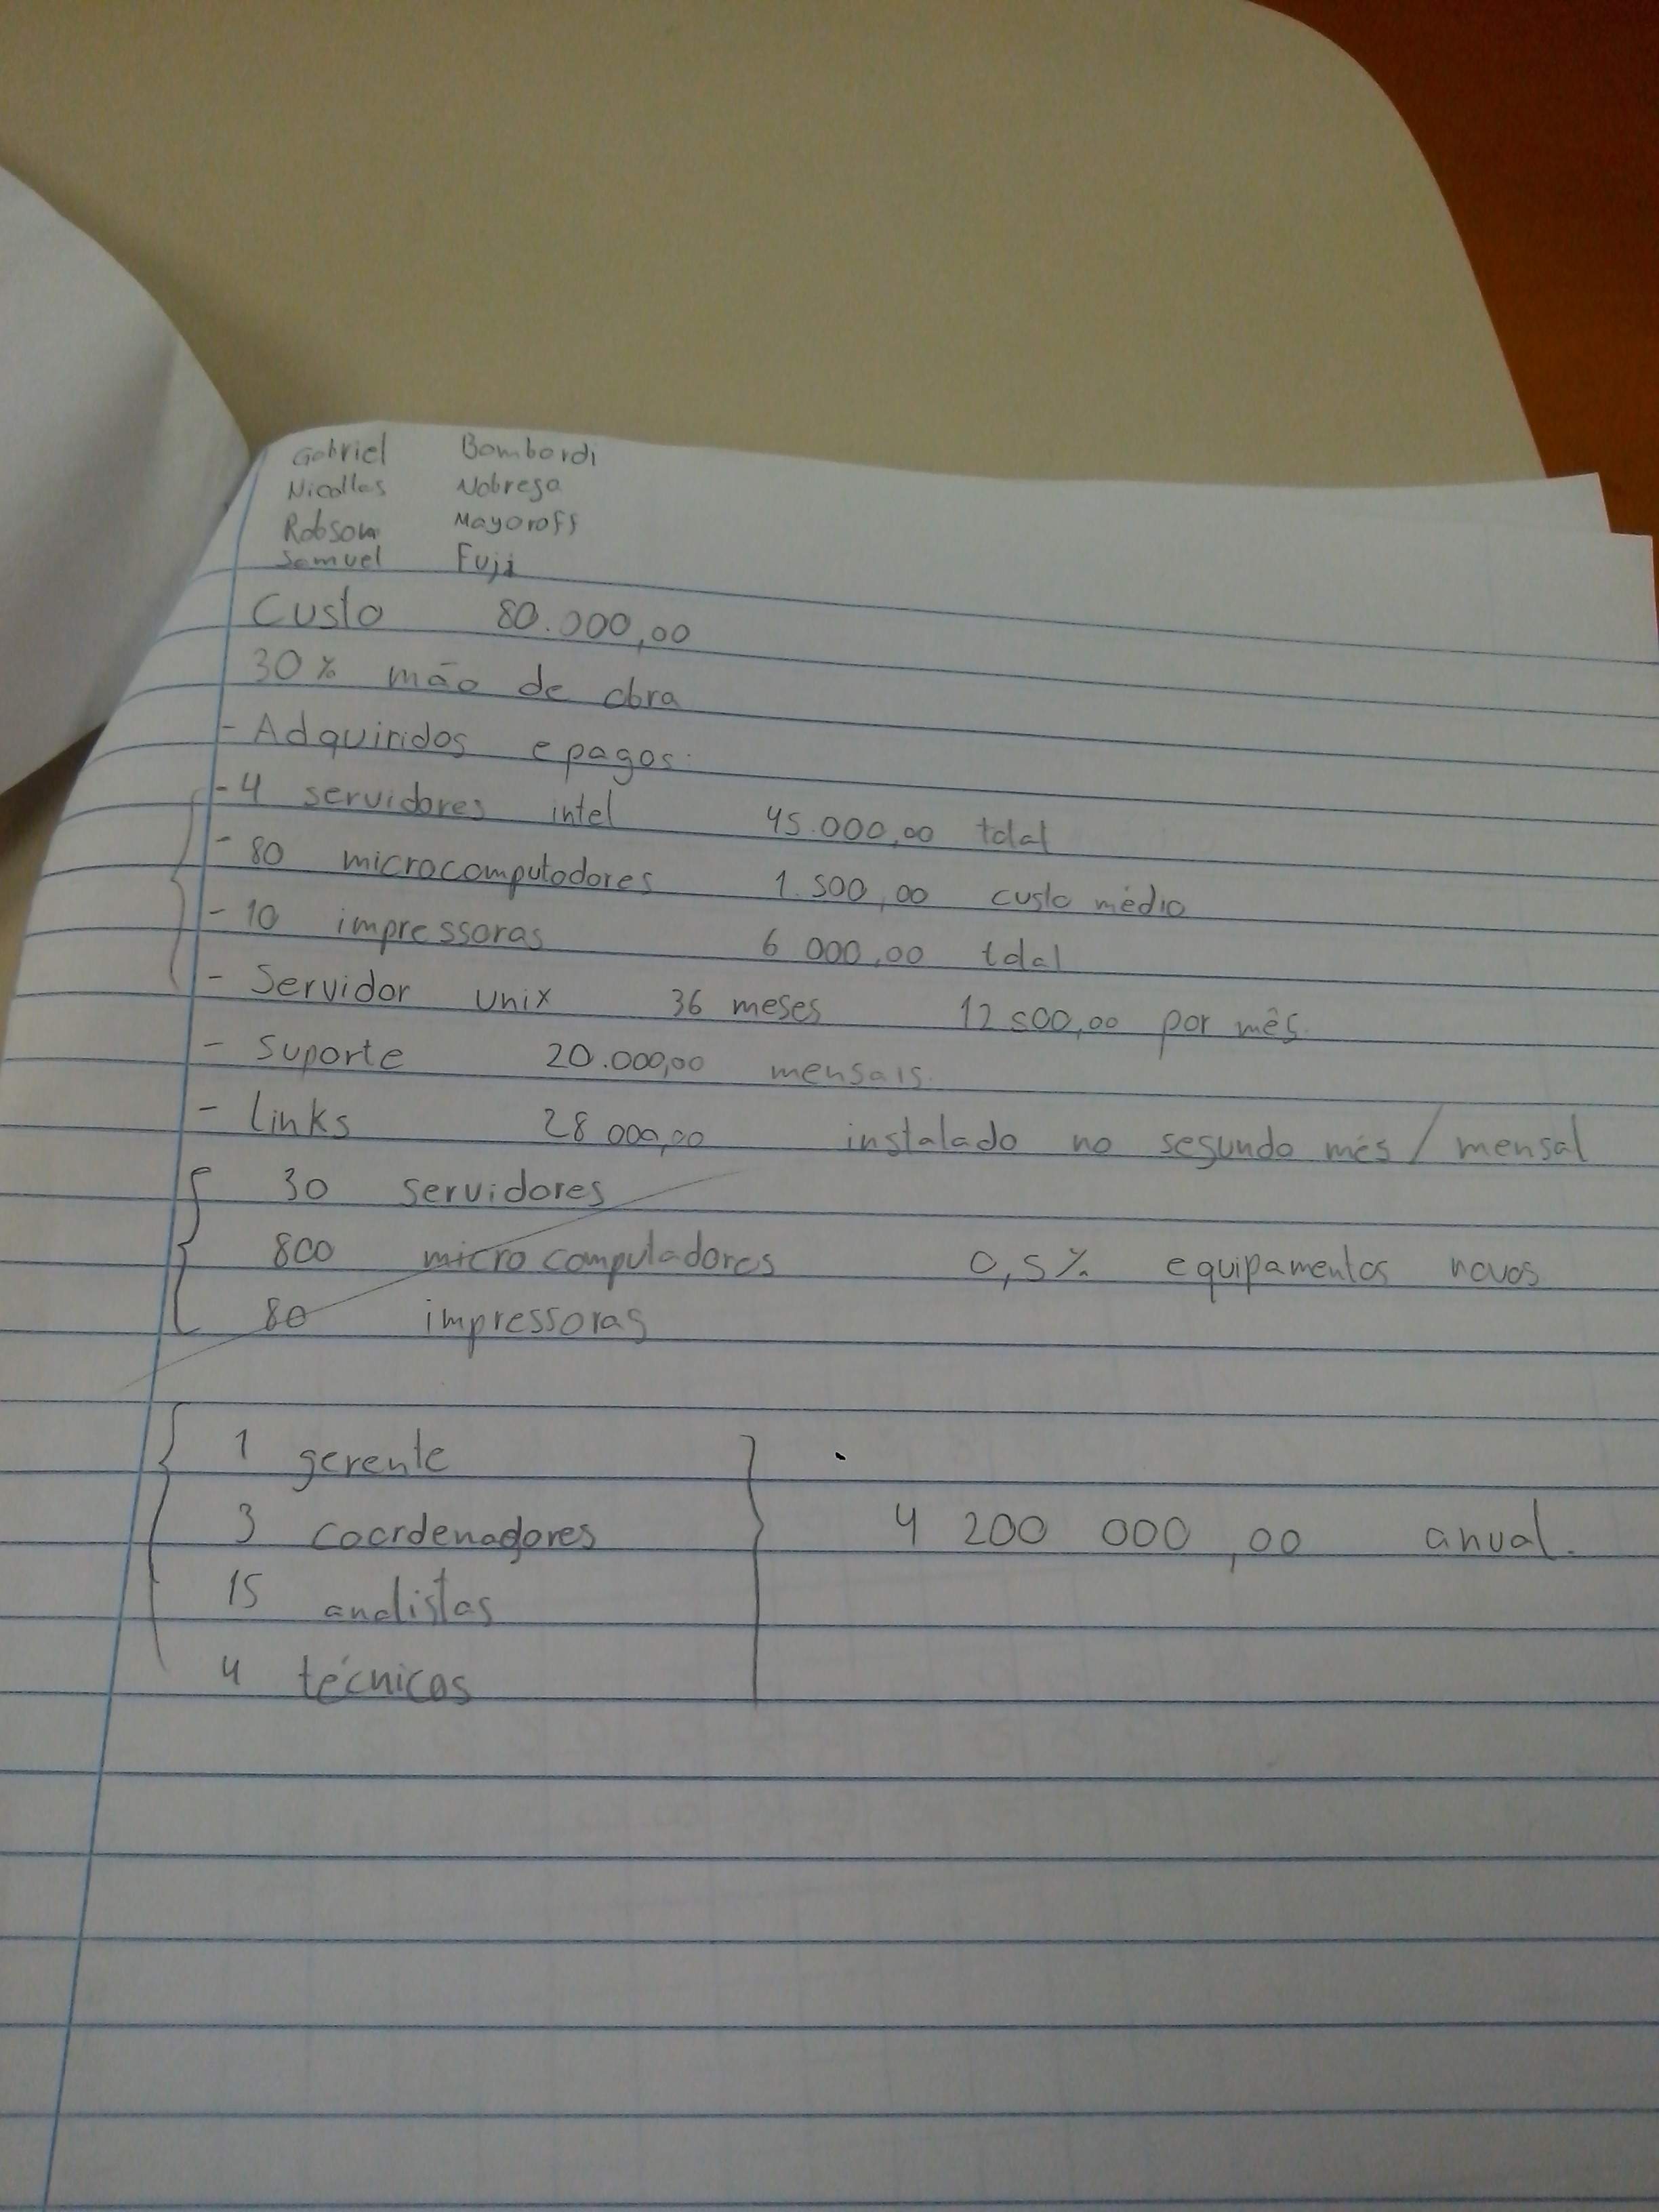 Gabriel Bombardi
Nicollas Nobrega
Robson Mayoroff
Samuel Fuji
Custo 80.000,00
30% mão de obra
- Adquiridos e pagos.
- 4 servidores intel 45.000,00 total
- 80 microcomputadores 1.500,00 custo médio
- 10 impressoras 6 000,00 total
- Servidor unix 36 meses 12 500,00 por mês.
- Suporte 20.000,00 mensais.
- Links 28 000,00 instalado no segundo mês / mensal
30 servidores
800 microcomputadores 0,5% equipamentos novos
80 impressoras
1 gerente
3 coordenadores 4 200 000,00 anual.
15 analistas
4 técnicos